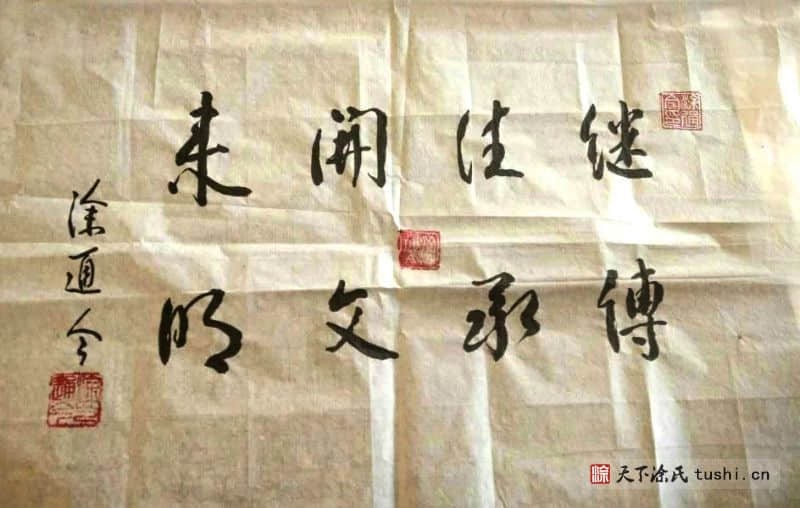 继往開来
傳承文明
涂通今
天下涂氏 tushi.cn